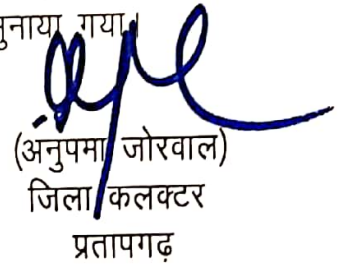 सुनाया गया।
(अनुपमा जोरवाल)
जिला कलक्टर
प्रतापगढ़